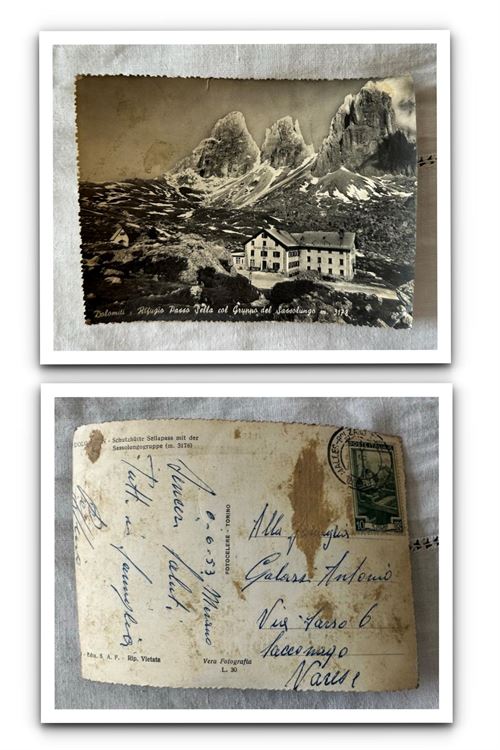 Dolomiti - Rifugio Passo Sella col Gruppo del Sassolungo m. 3178
Schutzhütte Sellapass mit der
Sassolongogruppe (m. 3178)
10-6-53
Sinceri saluti
Tutti in famiglia
FOTOCELERE - TORINO
POSTE ITALIANE
Alla famiglia
Galassi Antonio
Via Sarso 6
Saccouago
Varese
Ediz. S. A. F. - Rip. Vietata
Vera Fotografia
L. 30